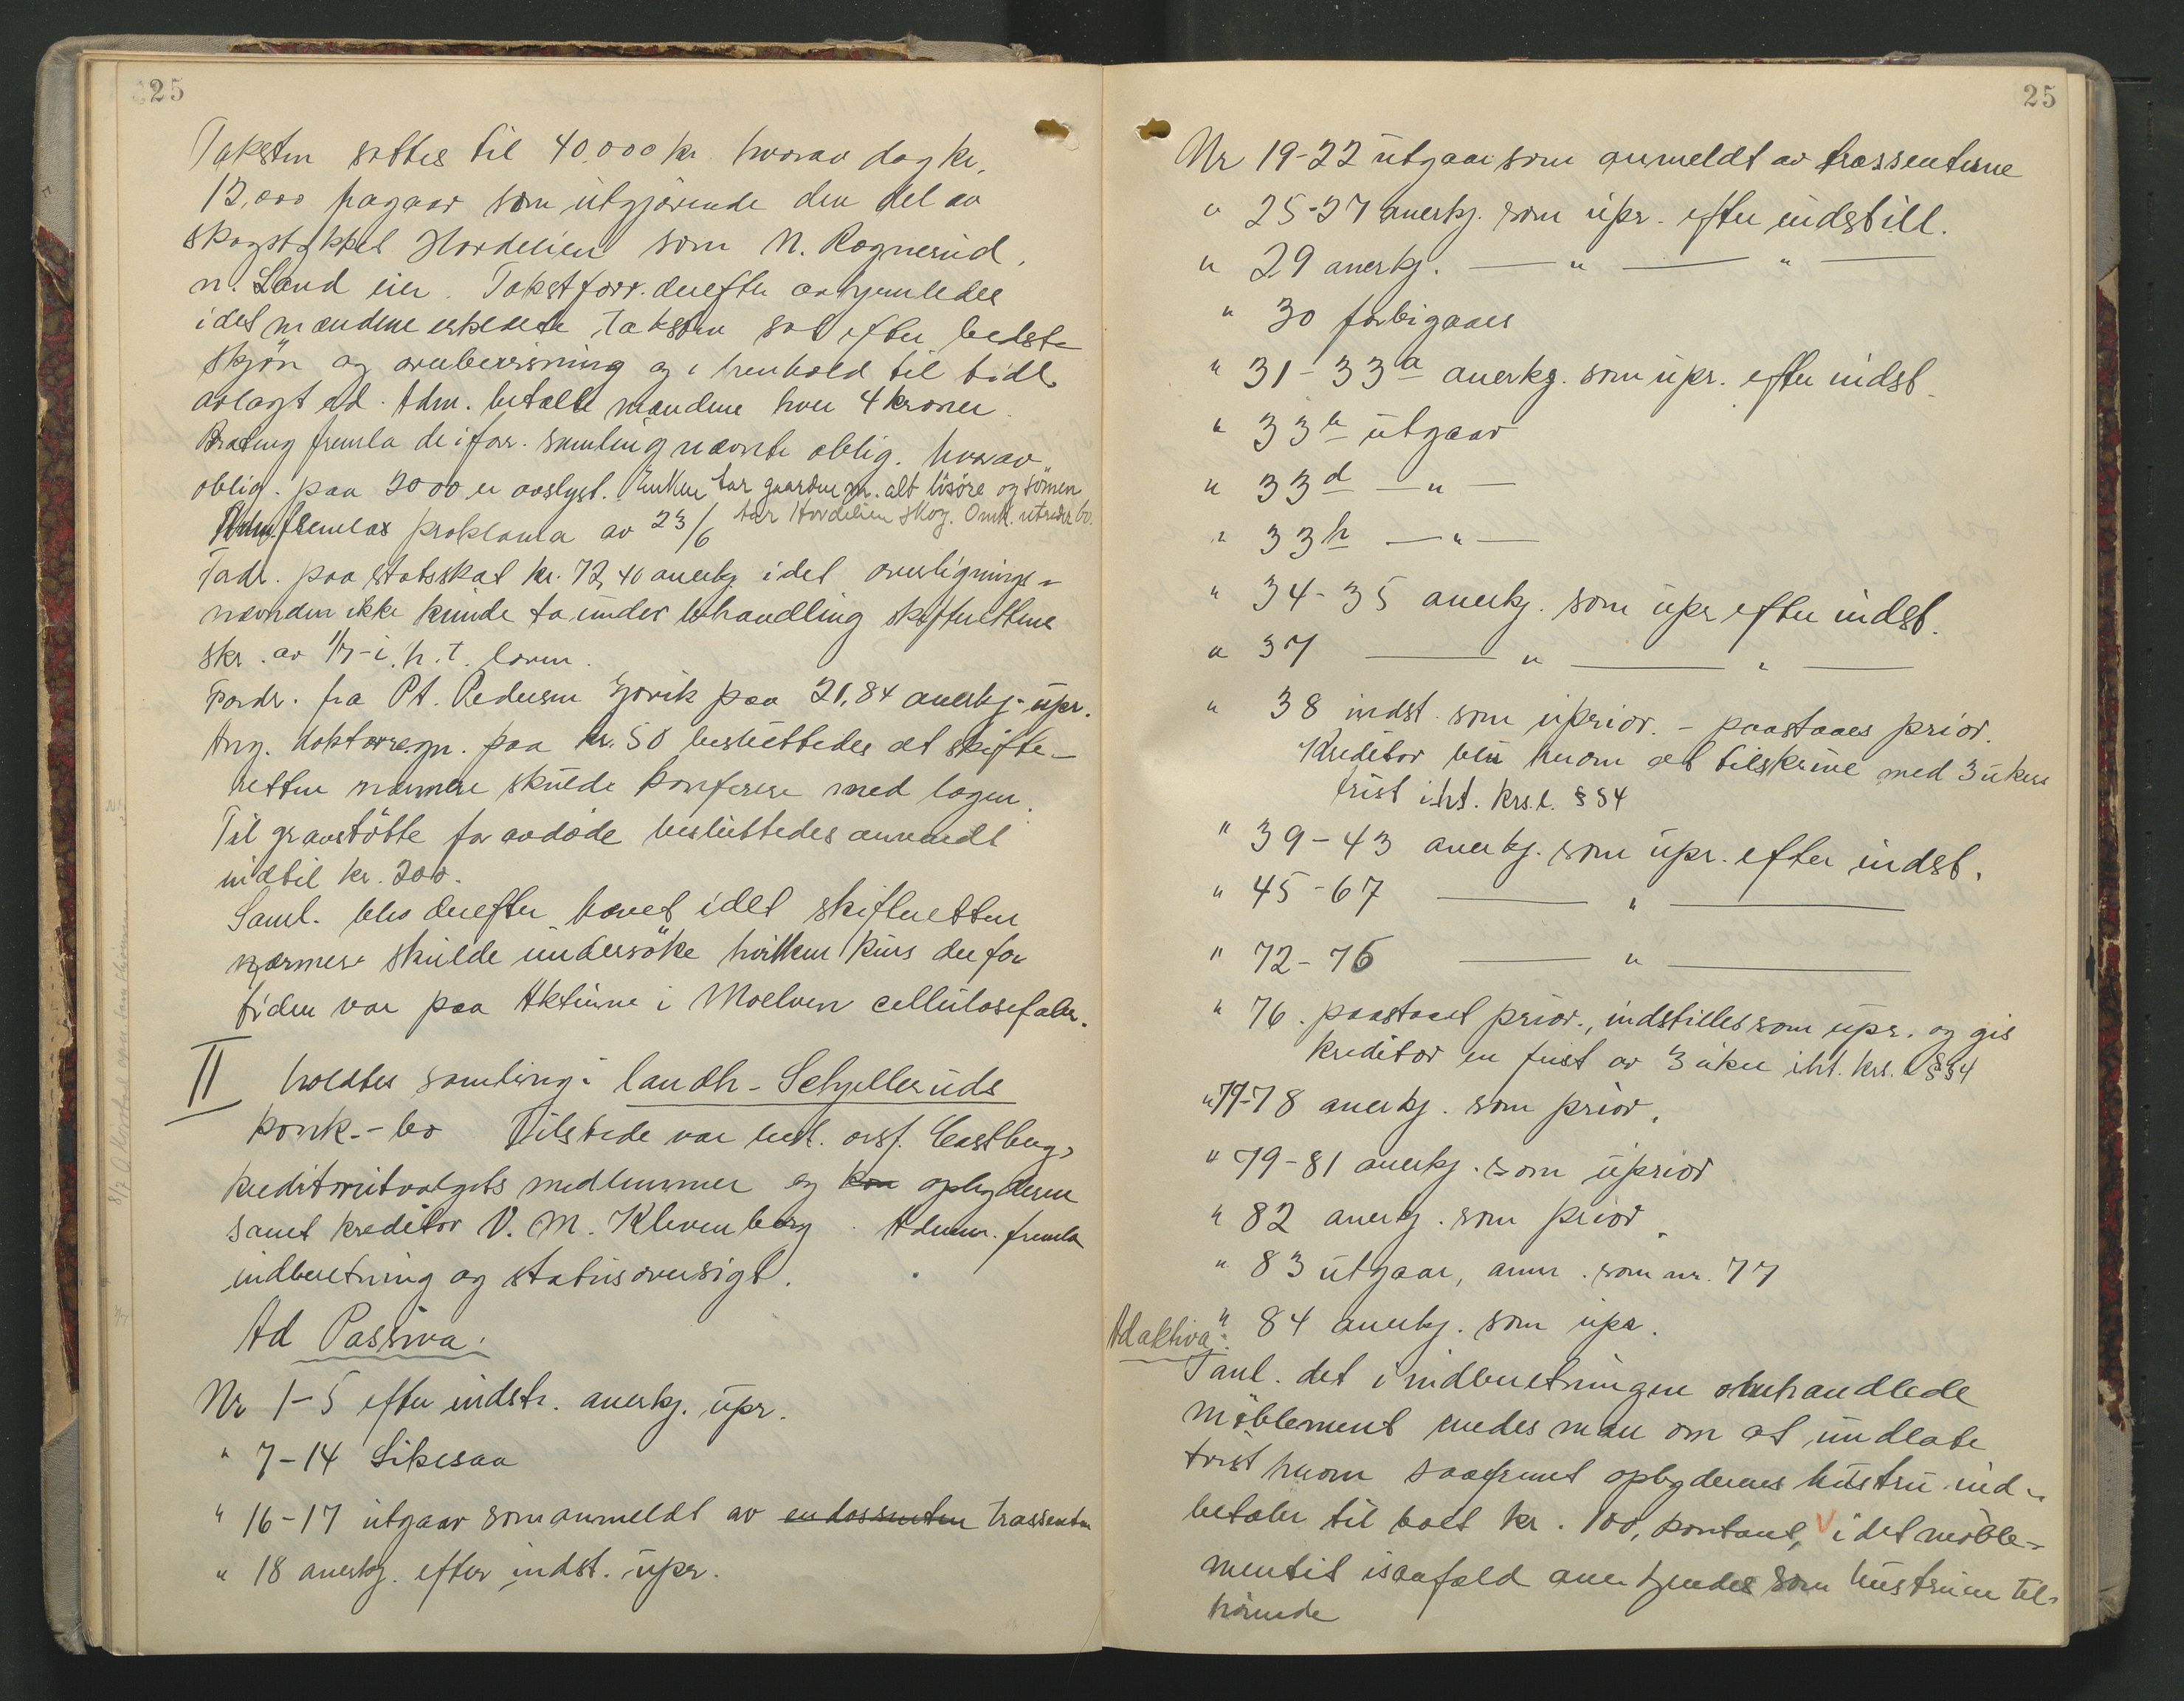 25
Taksten sattes til 40.000 kr hvorav dog kr.
12,000 fragaar som utgjörende den del av
skogstykket Hordelien som N. Rognerud,
n. Land eier. Takstforr. derefter avhjemledes
idet mændene erklærte taksten sat efter bedste
skjön og overbevisning og i henhold til tidl.
avlagt ed. Adm. betalte mændene hver 4 kroner.
fremla de i forr. samling nævnte oblig. hvorav
oblig. paa 2000 er avslyst. Enken tar gaarden m. alt lösöre og sönnen
tar Hordelien skog. Omk. utreder bo.
Adm. fremlas proklama av 23/6
Fordr. paa statsskat kr. 72,40 anerkj. idet overlignings-
nævnden ikke kunde ta under behandling skifterettens
skr. av 1/7 i. h. t. loven.
Fordr. fra Pt. Pedersen Gjövik paa 21,84 anerkj. upr.
Ang. doktorregn. paa kr. 50 besluttedes at skifte-
retten nærmere skulde konferere med lægen.
Til gravstötte for avdöde besluttedes anvendt
indtil kr. 200.
Saml. blev derefter hævet idet skifteretten
nærmere skulde undersöke hvilken kurs der for
tiden var paa Aktierne i Moelven cellulosefabr.
II holdtes samling i landh. Schjelleruds
konk.-bo Tilstede var best. orsf. Castberg,
kreditorutvalgets medlemmer og kon opbyderen
samt kreditor V. M. Klevenberg. Adm. fremla
indberetning og statusoversigt.
Ad Passiva:
Nr 1-5 efter indst. anerkj. upr.
" 7-14 Likesaa
" 16-17 utgaar som anmeldt av endossenten trassenten
" 18 anerkj. efter indst. upr.
25
Nr 19-22 utgaar som anmeldt av trassenterne
" 25-27 anerkj. som upr. efter indstill.
" 29 anerkj. — " — " —
" 30 forbigaaes
" 31-33 a anerkj. som upr. efter indst.
" 33 b utgaar
" 33 d — " —
" 33 h — " —
" 34-35 anerkj. som upr efter indst.
" 37 — " — " —
" 38 indst. som uprior. - paastaaes prior.
Kreditor blir herom at tilskrive med 3 ukers
frist i.ht. krs.l. § 54
" 39-43 anerkj. som upr. efter indst.
" 45-67 — " —
" 72-75 — " —
" 76. paastaaet prior., indstilles som upr. og gis
kreditor en frist av 3 uker iht. krs. l. § 54
" 77-78 anerkj. som prior.
" 79-81 anerkj. som uprior
" 82 anerkj. som prior.
" 83 utgaar, anm. som nr. 77
" 84 anerkj. som upr.
Ad aktiva:
Saml. det i indberetningen omhandlede
möblement enedes man om at undlate
tvist herom saafremt opbyderens hustru ind-
betaler til boet kr. 100, kontant, V idet möble-
mentet isaafald anerkjendes som hustruen til-
hörende